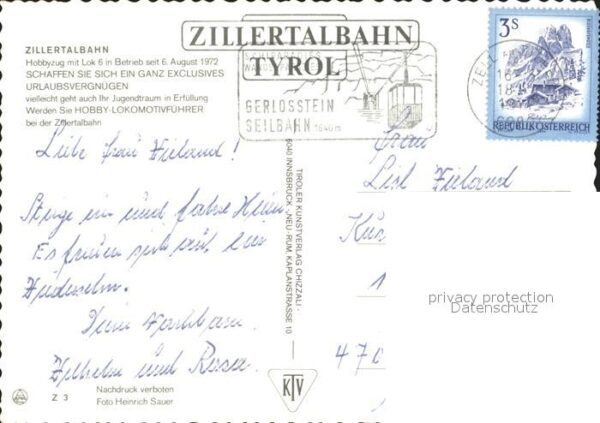 ZILLERTALBAHN
TYROL
ZILLERTALBAHN
Hobbyzug mit Lok 6 in Betrieb seit 6. August 1972
SCHAFFEN SIE SICH EIN GANZ EXCLUSIVES
URLAUBSVERGNÜGEN
vielleicht geht auch Ihr Jugendtraum in Erfüllung
Werden Sie HOBBY-LOKOMOTIVFÜHRER
bei der Zillertalbahn
GERLOSSTEIN
SEILBAHN 1640m
3S
REPUBLIK ÖSTERREICH
ZELL
Liebe Frau Wieland!
Steige ein und fahre Heim
Es freuen sich auf
Wiedersehn.
und Rosa.
TIROLER KUNSTVERLAG CHIZZALI
6040 INNSBRUCK-NEU-RUM, KAPLANSTRASSE 10
Frau
Wieland
privacy protection
Datenschutz
KTV
Z 3
Nachdruck verboten
Foto Heinrich Sauer